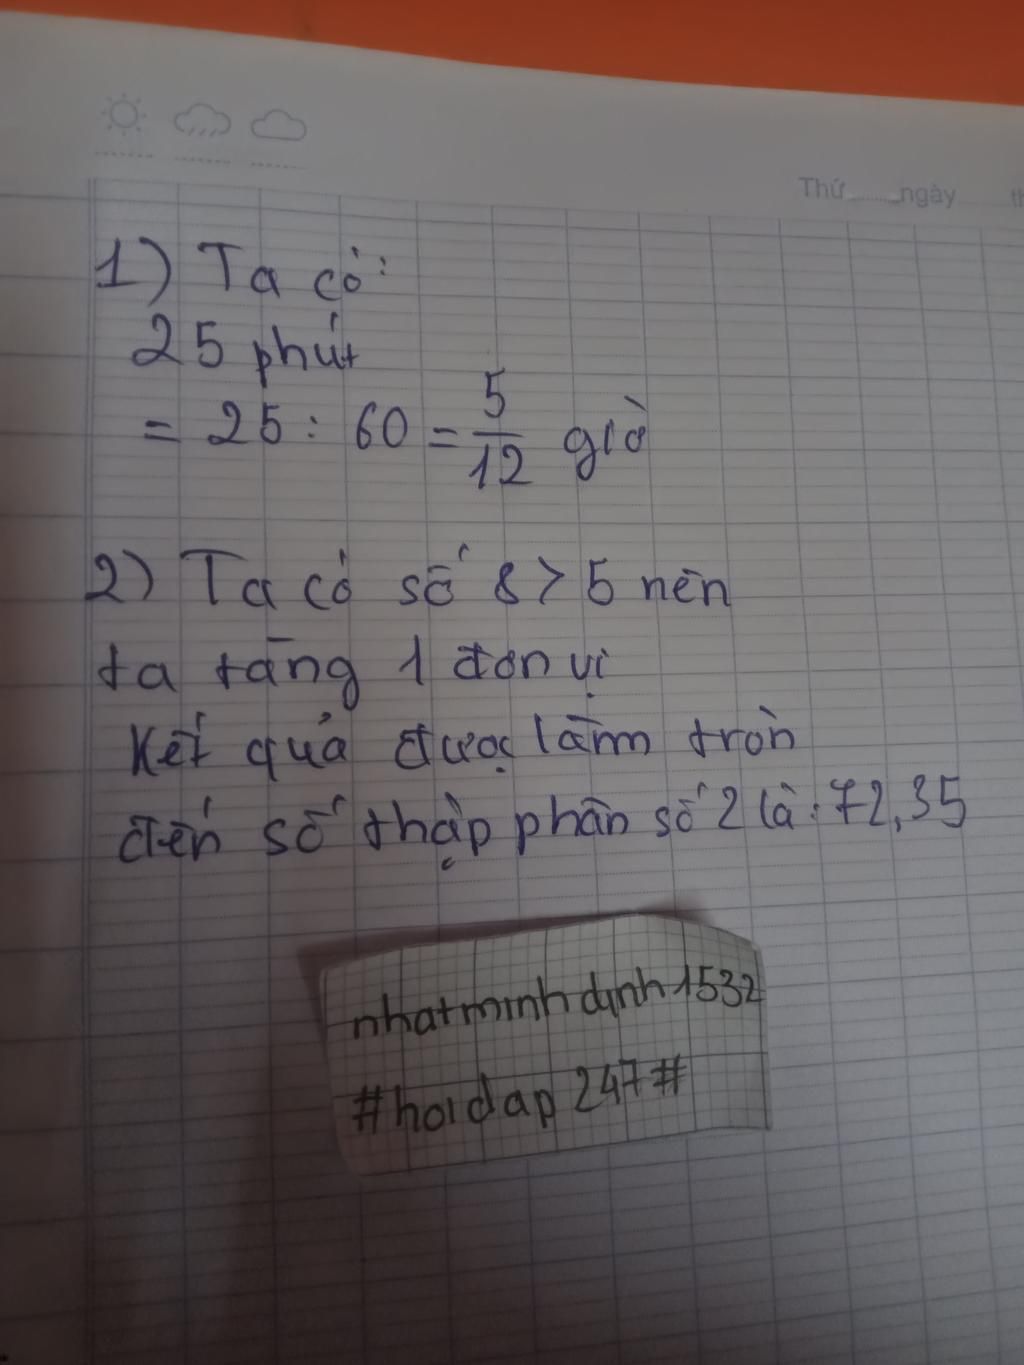 Thứ ngày th
1) Ta có:
25 phút
= 25 : 60 = 5/12 giờ
2) Ta có số 8 > 5 nên
ta tăng 1 đơn vị
Kết quả được làm tròn
đến số thập phân số 2 là : 72,35
nhatminhdinh1532
#hoidap247#